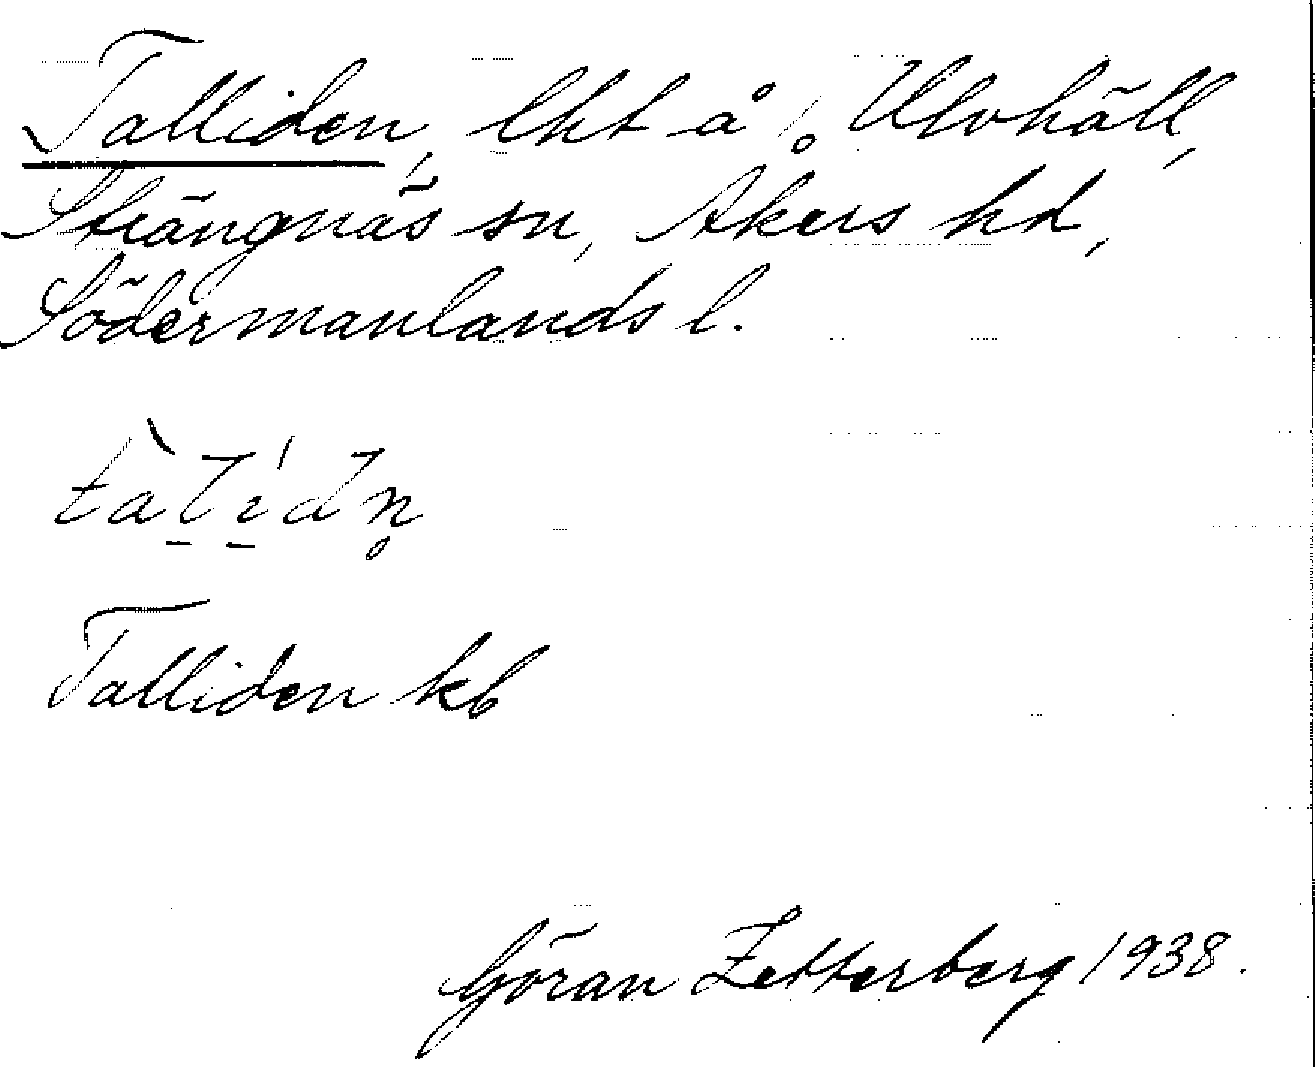 Talliden, lht å Ulvhäll,
Strängnäs sn, Åkers hd,
Södermanlands l.
tàlịdn̥
Talliden kb
Göran Zetterberg 1938.